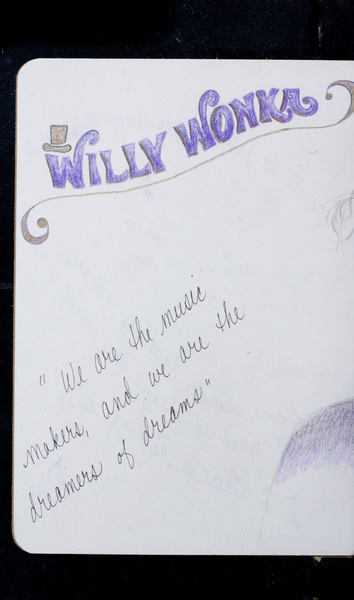 WILLY WONKA
"We are the music
makers, and we are the
dreamers of dreams"